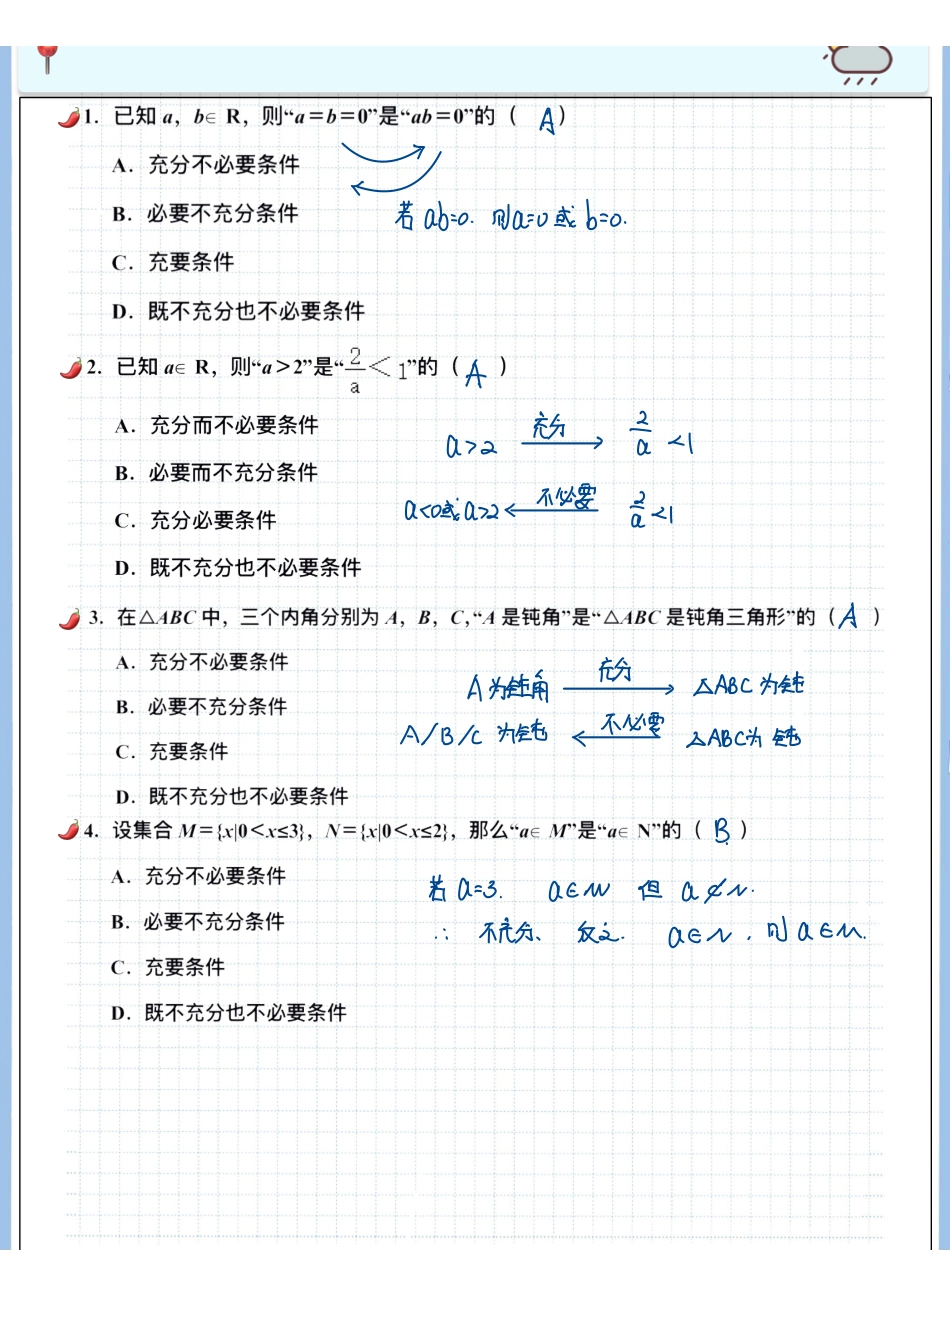 1. 已知 a，b∈ R，则“a＝b＝0”是“ab＝0”的（ A ）
A．充分不必要条件
B．必要不充分条件
若ab=0. 则a=0或b=0.
C．充要条件
D．既不充分也不必要条件
2. 已知 a∈ R，则“a＞2”是“2/a＜1”的（ A ）
A．充分而不必要条件
a>2 充分→ 2/a <1
B．必要而不充分条件
a<0或a>2 ←不必要 2/a <1
C．充分必要条件
D．既不充分也不必要条件
3. 在△ABC 中，三个内角分别为 A，B，C,“A 是钝角”是“△ABC 是钝角三角形”的（ A ）
A．充分不必要条件
A为钝角 充分→ △ABC为钝
B．必要不充分条件
A/B/C 为钝 ←不必要 △ABC为钝
C．充要条件
D．既不充分也不必要条件
4. 设集合 M＝{x|0＜x≤3}，N＝{x|0＜x≤2}，那么“a∈ M”是“a∈ N”的（ B ）
A．充分不必要条件
若a=3. a∈M 但 a∉N.
B．必要不充分条件
∴ 不充分、 反之. a∈N，则a∈M.
C．充要条件
D．既不充分也不必要条件